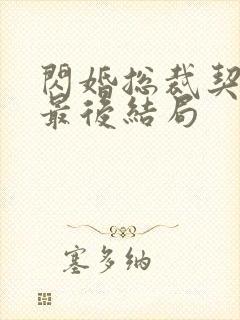 閃婚總裁契
最後結局
塞多納